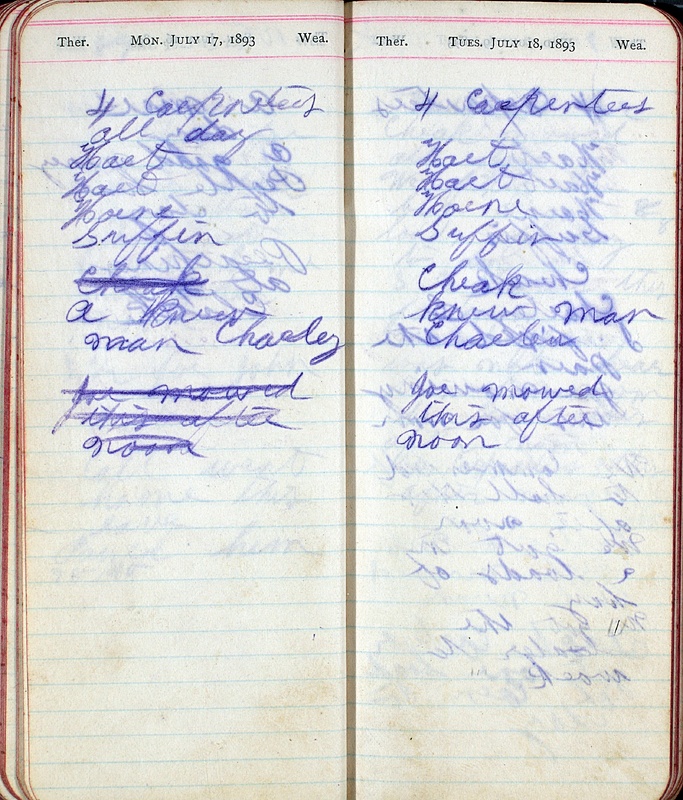 Ther. Mon. July 17, 1893 Wea.
4 Carpenters
all day
Haet
Haet
Hoene
Suffin
Cheak
a knew
man Charley
Joe mowed
this after
noon
Ther. Tues. July 18, 1893 Wea.
4 Carpenters
Haet
Haet
Hoene
Suffin
Cheak
knew man
Charley
Joe mowed
this after
noon